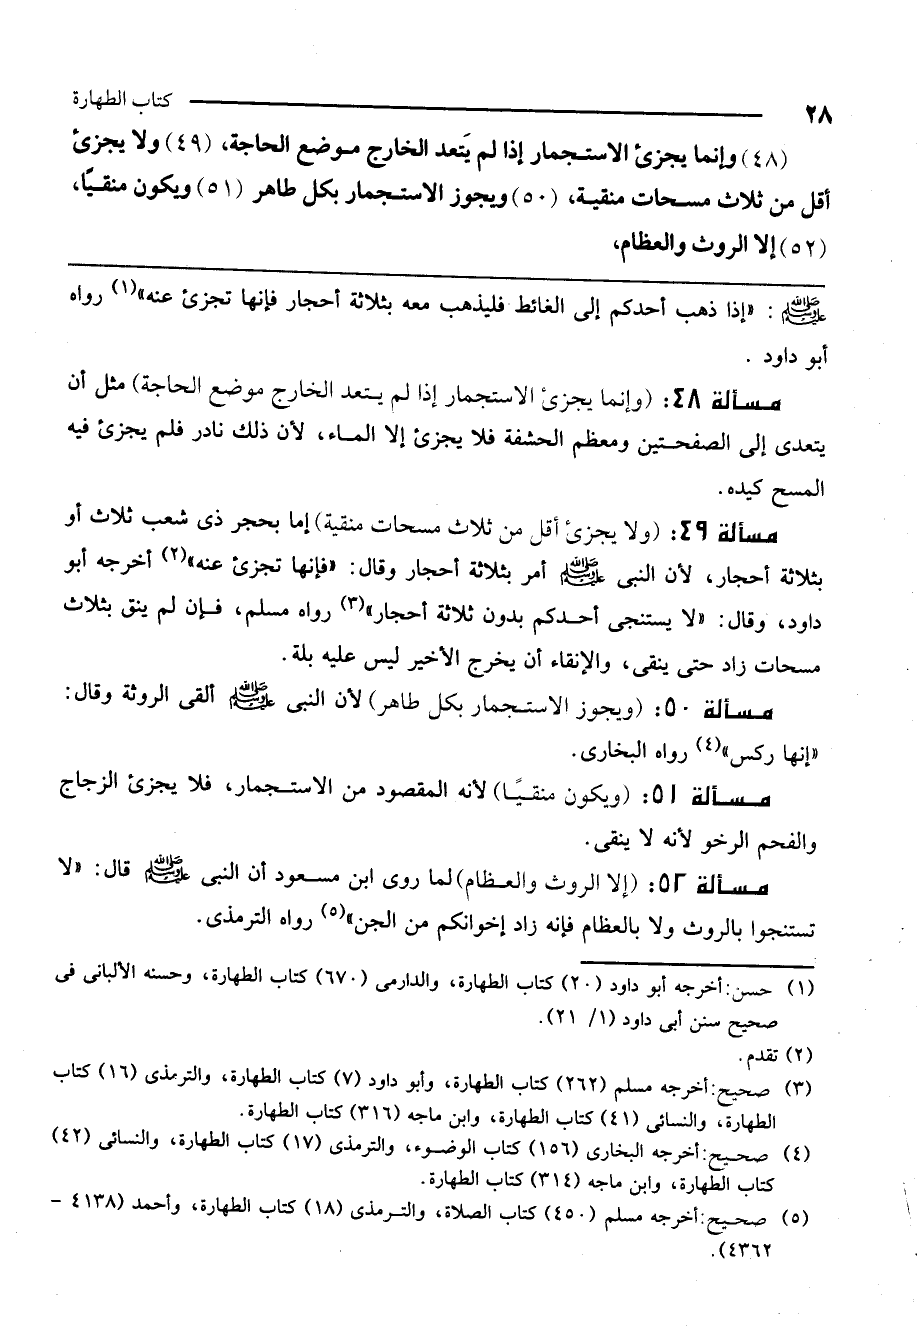 ٢٨ كتاب الطهارة
(٤٨) وإنما يجزئ الاستجمار إذا لم يَتعد الخارج موضع الحاجة، (٤٩) ولا يجزئ
أقل من ثلاث مسحات منقية، (٥٠) ويجوز الاستجمار بكل طاهر (٥١) ويكون منقيًا،
(٥٢) إلا الروث والعظام،
ﷺ : «إذا ذهب أحدكم إلى الغائط فليذهب معه بثلاثة أحجار فإنها تجزئ عنه»(١) رواه
أبو داود .
مسألة ٤٨: (وإنما يجزئ الاستجمار إذا لم يتعد الخارج موضع الحاجة) مثل أن
يتعدى إلى الصفحتين ومعظم الحشفة فلا يجزئ إلا الماء، لأن ذلك نادر فلم يجزئ فيه
المسح كيده.
مسألة ٤٩: (ولا يجزئ أقل من ثلاث مسحات منقية) إما بحجر ذى شعب ثلاث أو
بثلاثة أحجار، لأن النبى ﷺ أمر بثلاثة أحجار وقال: «فإنها تجزئ عنه»(٢) أخرجه أبو
داود، وقال: «لا يستنجى أحدكم بدون ثلاثة أحجار»(٣) رواه مسلم، فإن لم ينق بثلاث
مسحات زاد حتى ينقى، والإنقاء أن يخرج الأخير ليس عليه بلة.
مسألة ٥٠: (ويجوز الاستجمار بكل طاهر) لأن النبى ﷺ ألقى الروثة وقال:
«إنها ركس»(٤) رواه البخارى.
مسألة ٥١: (ويكون منقيًا) لأنه المقصود من الاستجمار، فلا يجزئ الزجاج
والفحم الرخو لأنه لا ينقى.
مسألة ٥٢: (إلا الروث والعظام) لما روى ابن مسعود أن النبى ﷺ قال: «لا
تستنجوا بالروث ولا بالعظام فإنه زاد إخوانكم من الجن»(٥) رواه الترمذى.
(١) حسن: أخرجه أبو داود (٢٠) كتاب الطهارة، والدارمى (٦٧٠) كتاب الطهارة، وحسنه الألبانى فى
صحيح سنن أبى داود (١/ ٢١).
(٢) تقدم.
(٣) صحيح: أخرجه مسلم (٢٦٢) كتاب الطهارة، وأبو داود (٧) كتاب الطهارة، والترمذى (١٦) كتاب
الطهارة، والنسائى (٤١) كتاب الطهارة، وابن ماجه (٣١٦) كتاب الطهارة.
(٤) صحيح: أخرجه البخارى (١٥٦) كتاب الوضوء، والترمذى (١٧) كتاب الطهارة، والنسائى (٤٢)
كتاب الطهارة، وابن ماجه (٣١٤) كتاب الطهارة.
(٥) صحيح: أخرجه مسلم (٤٥٠) كتاب الصلاة، والترمذى (١٨) كتاب الطهارة، وأحمد (٤١٣٨ -
٤٣٦٢).